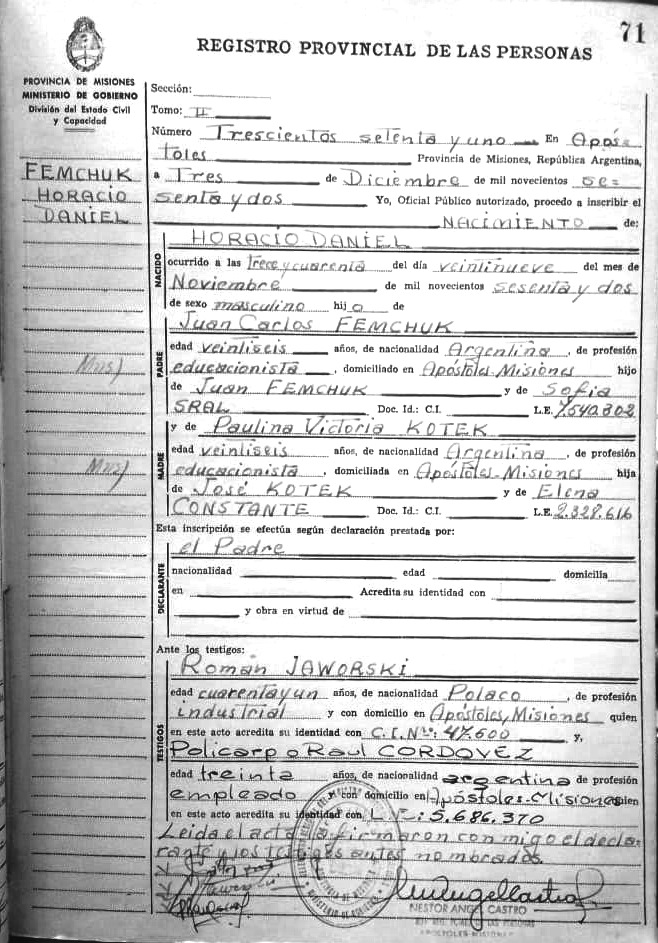 71
REGISTRO PROVINCIAL DE LAS PERSONAS
PROVINCIA DE MISIONES
MINISTERIO DE GOBIERNO
División del Estado Civil
y Capacidad
FEMCHUK
HORACIO
DANIEL
Sección:
Tomo: II
Número Trescientos setenta y uno — En Após=
toles Provincia de Misiones, República Argentina,
a Tres de Diciembre de mil novecientos se=
senta y dos Yo, Oficial Público autorizado, procedo a inscribir el
NACIMIENTO de:
NACIDO
HORACIO DANIEL
ocurrido a las trece y cuarenta del día veintinueve del mes de
Noviembre de mil novecientos sesenta y dos
de sexo masculino hijo de
Juan Carlos FEMCHUK
PADRE
edad veintiseis años, de nacionalidad Argentina, de profesión
educacionista, domiciliado en Apóstoles-Misiones hijo
de Juan FEMCHUK y de Sofia
SRAL Doc. Id.: C.I. L.E. 7.540.302
y de Paulina Victoria KOTEK
MADRE
edad veintiseis años, de nacionalidad Argentina, de profesión
educacionista, domiciliada en Apóstoles-Misiones hija
de José KOTEK y de Elena
CONSTANTE Doc. Id.: C.I. L.E. 2.328.616
Esta inscripción se efectúa según declaración prestada por:
el Padre
DECLARANTE
nacionalidad edad domicilia
en Acredita su identidad con
y obra en virtud de
Ante los testigos:
Roman JAWORSKI
TESTIGOS
edad cuarenta y un años, de nacionalidad Polaco, de profesión
industrial y con domicilio en Apóstoles, Misiones quien
en este acto acredita su identidad con C.I. Nº: 47.600 y,
Policarpo Raul CORDOVEZ
edad treinta años, de nacionalidad argentina de profesión
empleado y con domicilio en Apóstoles-Misiones quien
en este acto acredita su identidad con L.E: 5.686.370
Leida el acta la firmaron conmigo el decla-
rante y los testigos antes nombrados.
NESTOR ANGEL CASTRO
APOSTOLES-MISIONES